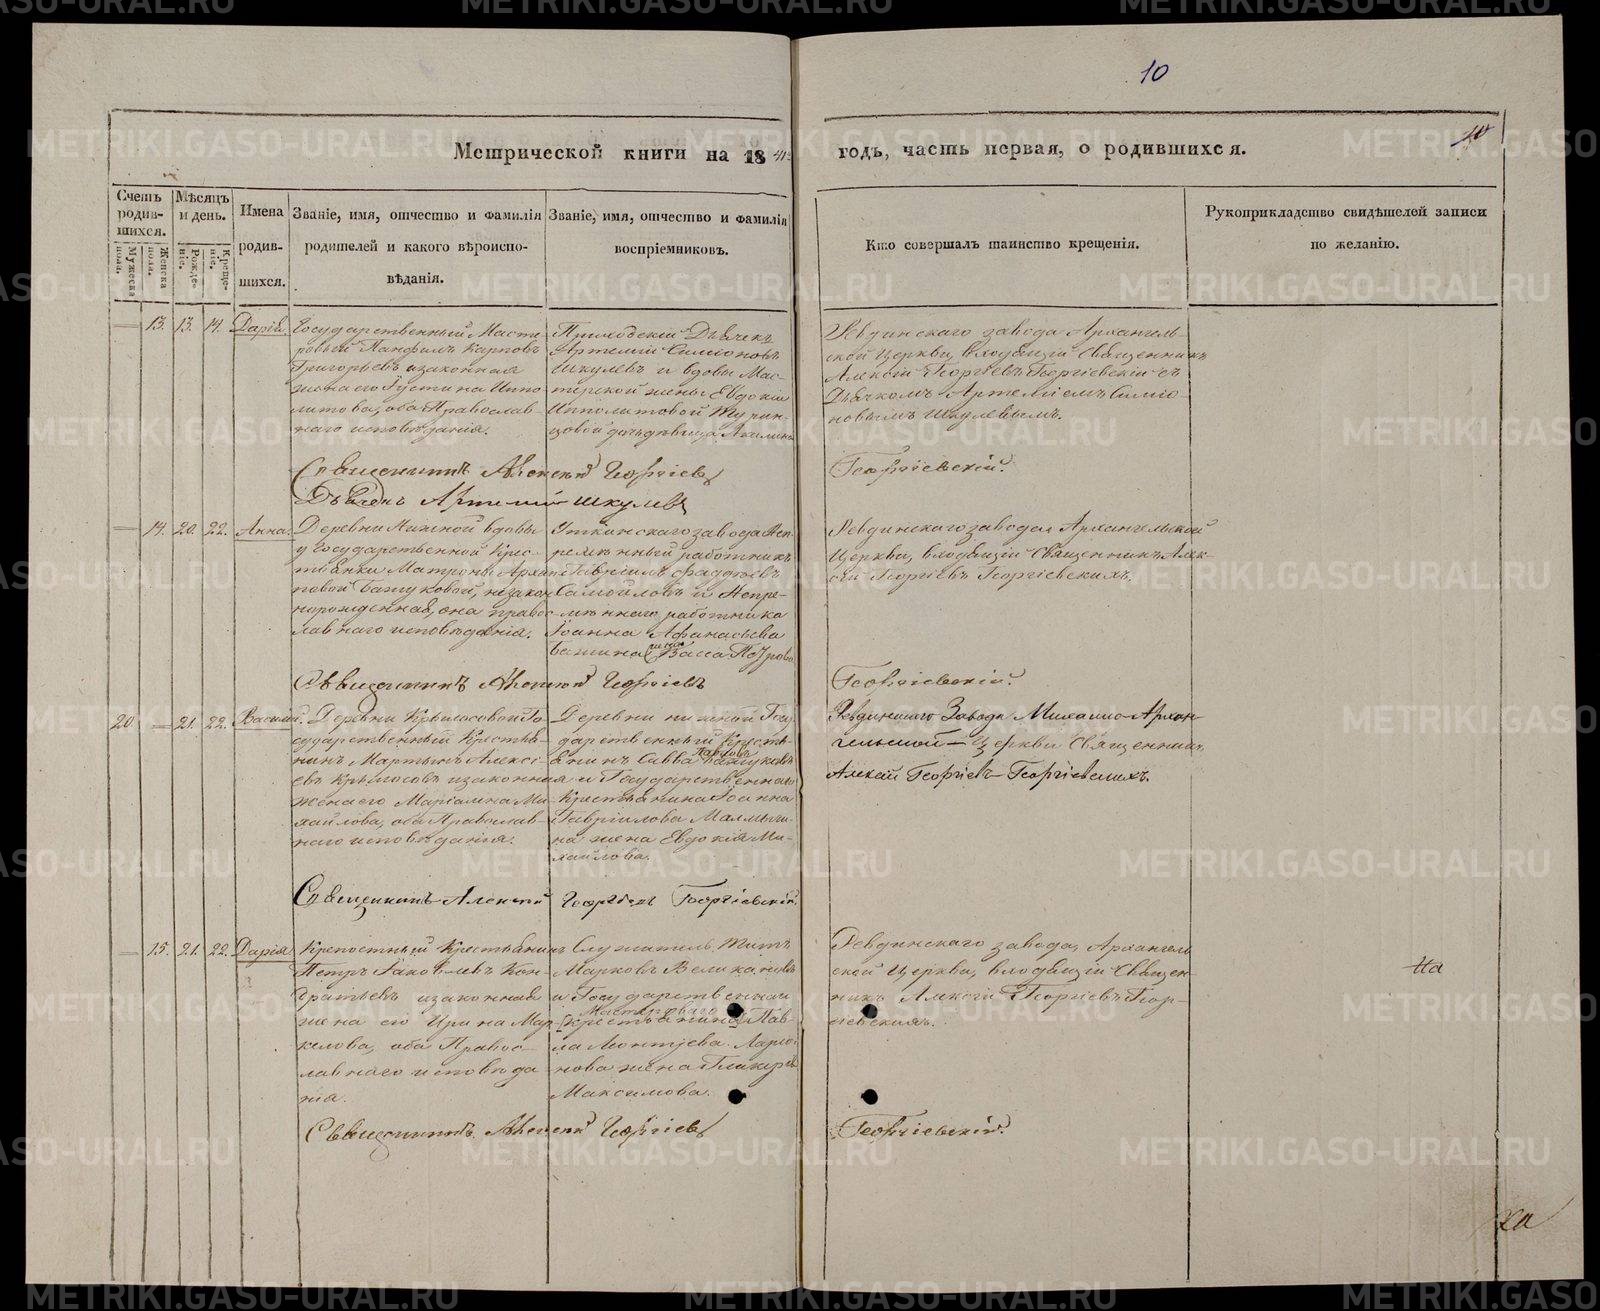 10
10
Метрической книги на 1841й
годъ, часть первая, о родившихся.
Счетъ родившихся.
Мужеска пола.
Женска пола.
Мѣсяцъ и день.
Рожденіе.
Крещеніе.
Имена родившихся.
Званіе, имя, отчество и фамилія
родителей и какого вѣроиспо-
вѣданія.
Званіе, имя, отчество и фамилія
воспріемниковъ.
Кто совершалъ таинство крещенія.
Рукоприкладство свидѣтелей записи
по желанію.
13. 13. 14. Дарія.
Государственный Масте-
ровый Панфилъ Карповъ
Григорьевъ и законная
жена его Густина Иппо-
литова, оба Православ-
наго исповѣданія.
Приходскій Дьячекъ
Артемій Симеоновъ
Шкулевъ и вдовы Мас-
терской жены Евдокіи
Ипполитовой Турин-
цовой дочь девица Акилина
Ревдинскаго завода Архангель-
ской Церкви, владѣющій Священникъ
Алексій Георгіевъ Георгіевскій съ
Дьячкомъ Артеміемъ Симео-
новымъ Шкулевымъ.
Священникъ Алексій Георгіевъ
Георгіевскій.
Дьячекъ Артемій Шкулевъ
14. 20. 22. Анна.
Деревни Нижной вдовы
у Государственной Крес-
тьянки Матроны Архи-
повой Башуковой, незакон-
норожденная, она правос-
лавнаго исповѣданія.
Уткинскаго завода Неп-
ремѣнный работникъ
Гавріилъ Фаддѣевъ
Самойловъ и Непре-
мѣннаго работника
Іоанна Афанасьева
жена Васса Петрова
Ревдинскаго завода Архангельской
Церкви, Священникъ Алек-
сій Георгіевъ Георгіевскихъ.
Священникъ Алексій Георгіевъ
Георгіевскій.
20 21. 22. Василій.
Деревни Крылосовой Го-
сударственный Крестья-
нинъ Мартынъ Алексі-
евъ Крылосовъ и законная
жена его Маріамна Ми-
хайлова, оба Православ-
наго исповѣданія.
Деревни нижной Госу-
дарственный Кресть-
янинъ Савва Карповъ Башуковъ
и Государственнаго
Крестьянина Іоанна
Гавріилова Малыги-
на жена Евдокія Ми-
хайлова.
Ревдинскаго Завода Михаило-Архан-
гельской Церкви Священникъ
Алексій Георгіевъ Георгіевскихъ.
Священникъ Алексій Георгіевъ Георгіевскій.
15. 21. 22. Дарія
Крепостный Крестьянинъ
Петръ Іаковлевъ Кон-
дратьевъ и законная
жена его Ирина Мар-
келова, оба Правос-
лавнаго исповѣда-
нія.
Служитель Титъ
Марковъ Великановъ
и Государственнаго
Мастероваго
[крестьянина] Пав-
ла Леонтьева Ларио-
нова жена Гликерія
Максимова.
Ревдинскаго завода, Архангель-
ской Церкви, Священ-
никъ Алексій Георгіевъ Геор-
гіевскихъ.
На
Священникъ Алексій Георгіевъ
Георгіевскій.
METRIKI.GASO-URAL.RU